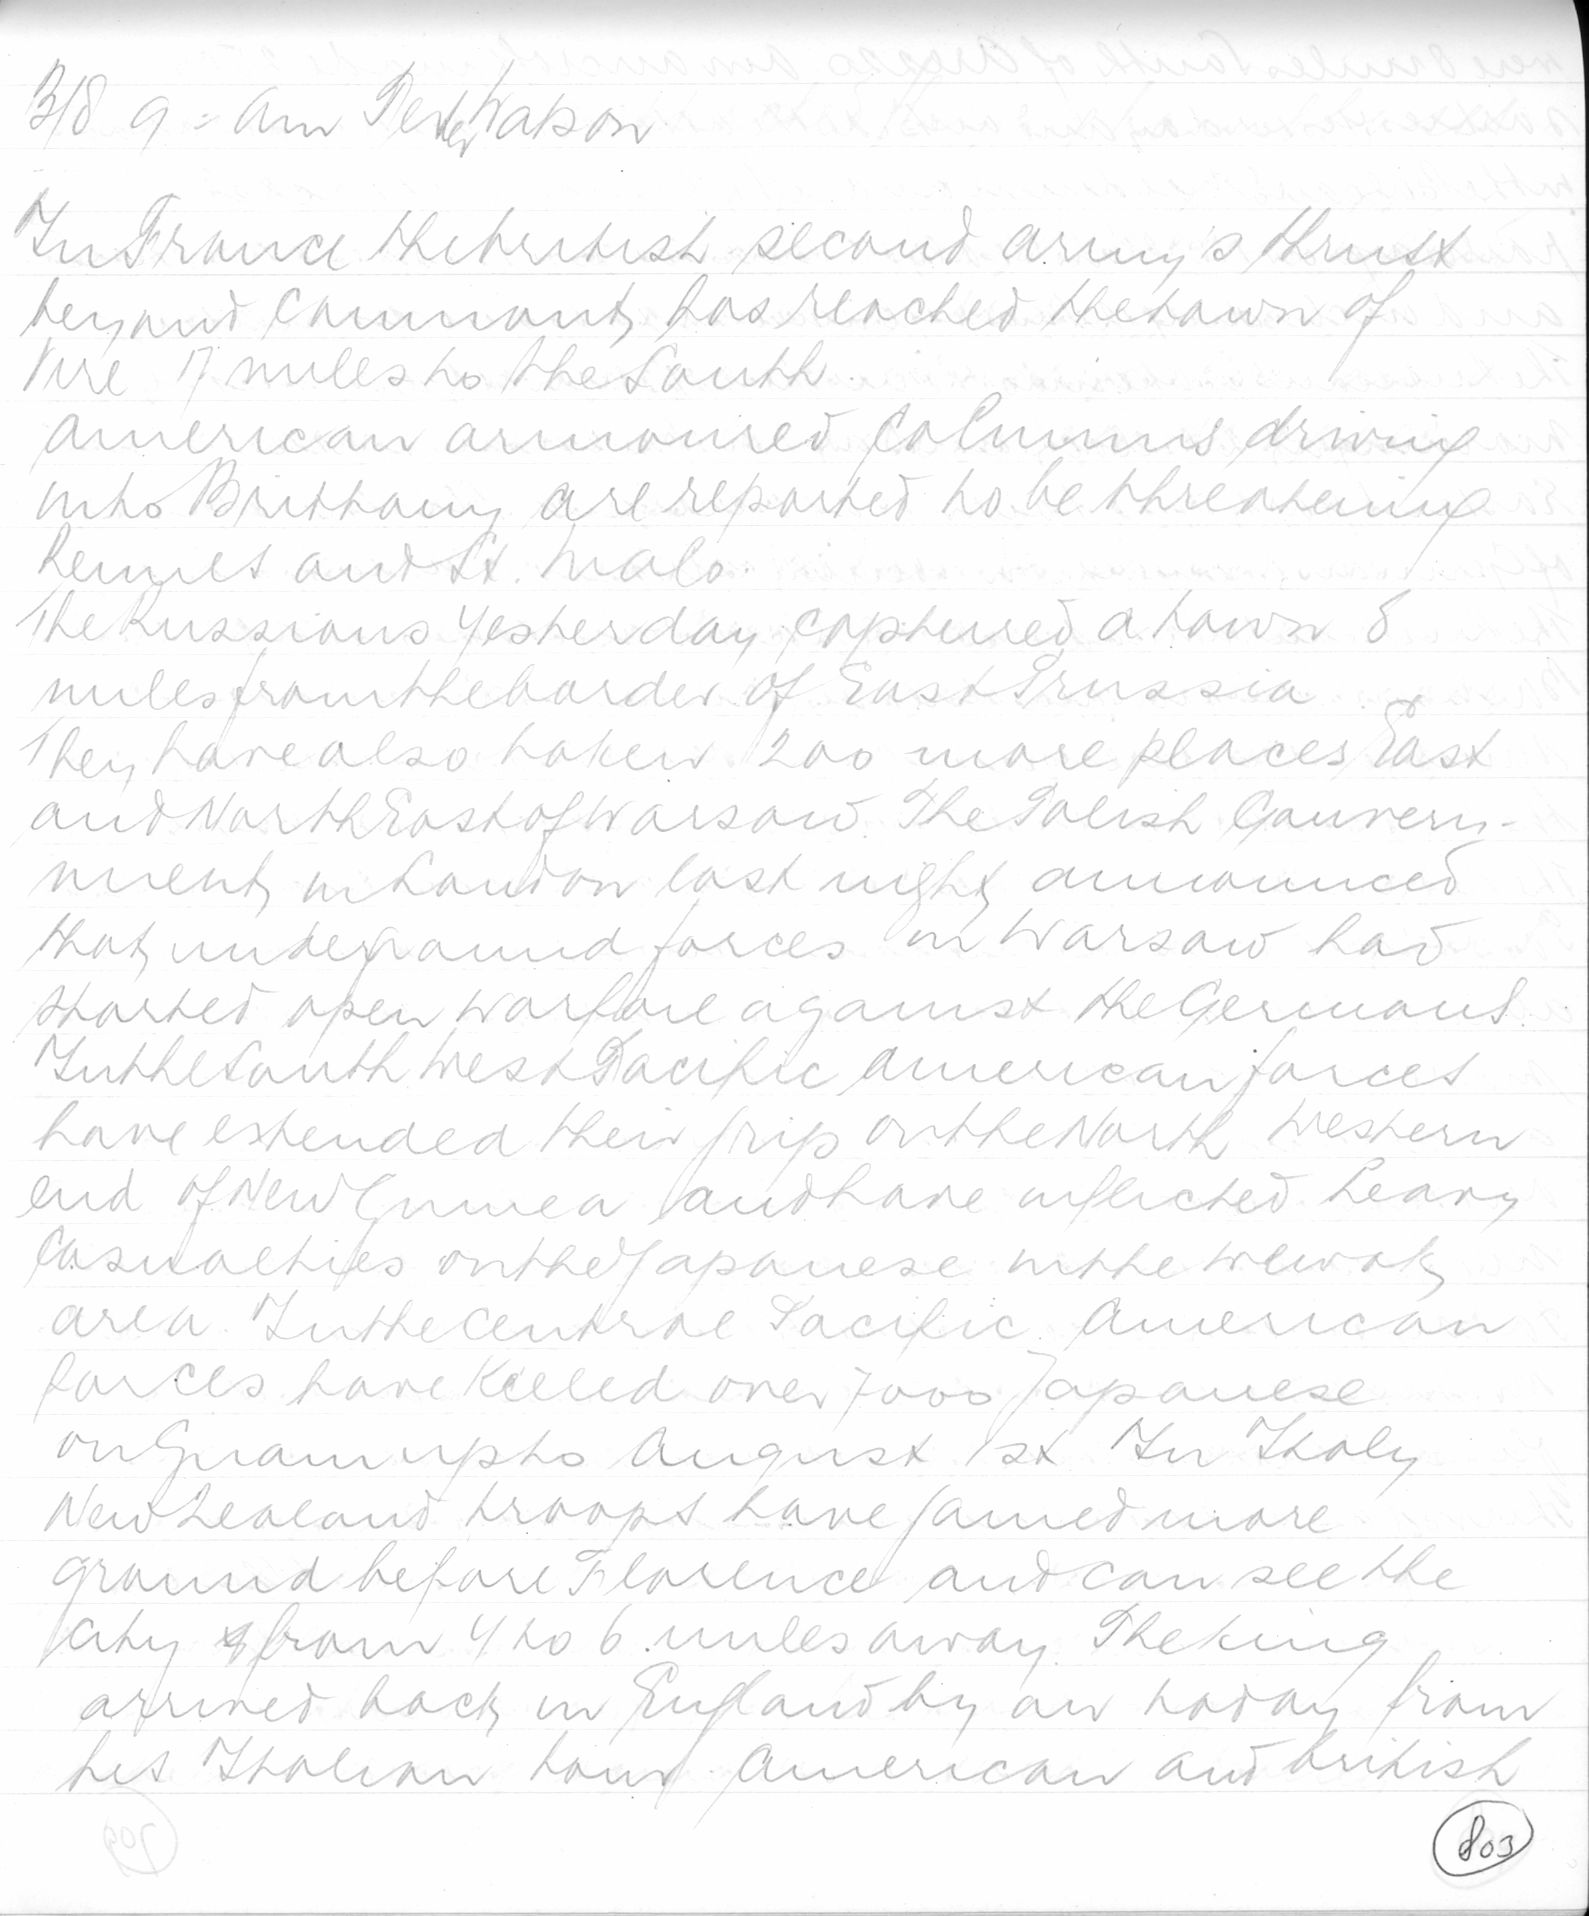 3/8 9 = am Peter Watson
In France the british second army's thrust
beyond Caumont has reached the town of
Vire 17 miles to the South.
American armoured Columns driving
into Brittany are reported to be threatening
Rennes and St. Malo.
The Russians Yesterday captured a town 8
miles from the border of East Prussia
They have also taken 200 more places East
and North East of Warsaw. The Polish Gouvern-
ment in London last night announced
that undeground forces in Warsaw had
started open warfare against the Germans.
In the South West Pacific American forces
have extended their grip on the North Western
end of New Guinea and have inflicted heavy
Casualties on the Japanese in the Wewak
area. In the Central Pacific American
forces have Killed over 7000 Japanese
on Guam up to August 1st In Italy
New Zealand troops have gained more
ground before Florence and can see the
City from 4 to 6 miles away. The King
arrived back in England by air today from
his Italian tour. American and british
803